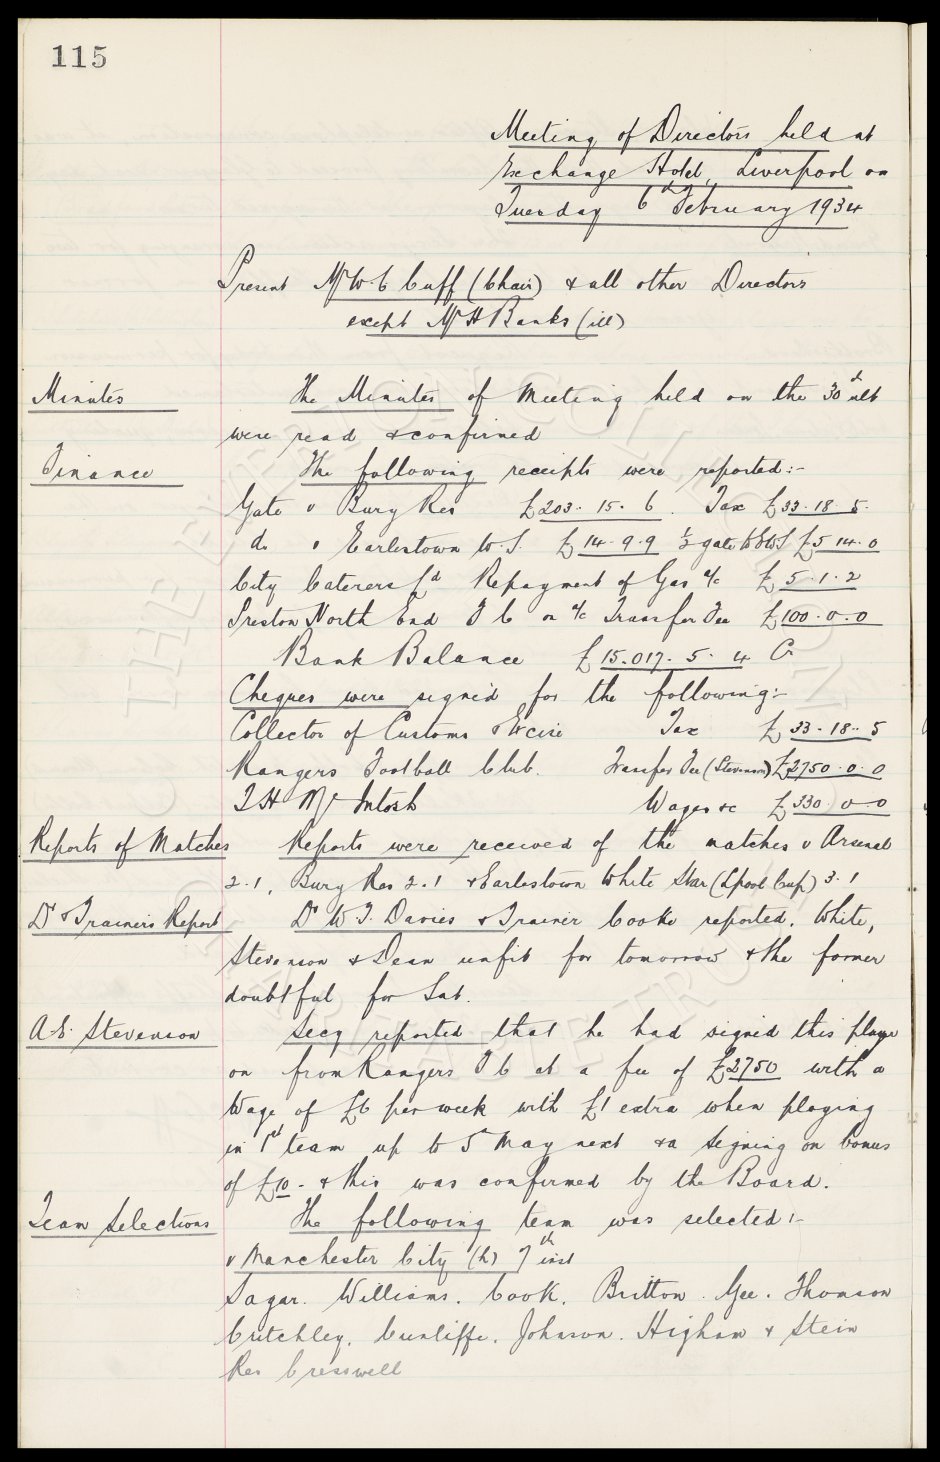 115
Meeting of Directors held at
Exchange Hotel, Liverpool on
Tuesday 6th February 1934
Present Mr W C Cuff (Chair) & all other Directors
except Mr H Banks (ill)
Minutes The Minutes of Meeting held on the 30th ult
were read & confirmed
Finance The following receipts were reported:-
Gate v Bury Res £203. 15. 6. Tax £33. 18. 5.
do v Earlestown W.S. £14. 9. 9 ½ gate to EWS £5. 14. 0
City Caterers Ld Repayment of Gas a/c £5. 1. 2
Preston North End F C on a/c Transfer Fee £100. 0. 0
Bank Balance £15.017. 5. 4 Cr
Cheques were signed for the following:-
Collector of Customs & Excise Tax £33. 18. 5
Rangers Football Club. Transfer Fee (Stevenson) £2750. 0. 0
T H McIntosh Wages &c £330. 0. 0
Reports of Matches Reports were received of the matches v Arsenal
2.1, Bury Res 2.1 & Earlestown White Star (Lpool Cup) 3.1
Dr & Trainers Report Dr W.J. Davies & Trainer Cooke reported. White,
Stevenson & Dean unfit for tomorrow & the former
doubtful for Sat.
A.E. Stevenson Secy reported that he had signed this player
on from Rangers F C at a fee of £2750 with a
Wage of £6 per week with £1 extra when playing
in 1st team up to 5 May next & a signing on bonus
of £10 - & this was confirmed by the Board.
Team Selections The following team was selected:-
v Manchester City (h) 7th inst
Sagar. Williams. Cook. Britton. Gee. Thomson
Critchley. Cunliffe. Johnson. Higham & Stein
Res Cresswell
THE EVERTON COLLECTION
CHARITABLE TRUST